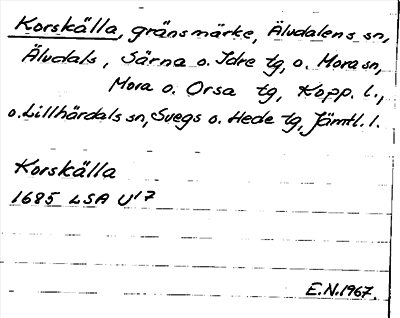 Korskälla, gränsmärke, Äludalens sn,
Äludals, Särna o. Idre tg, o. Mora sn,
Mora o. Orsa tg, Kopp. l.,
o. Lillhärdals sn, Svegs o. Hede tg, Jämtl. l.
Korskälla
1685 LSA U¹7
E.N. 1967.